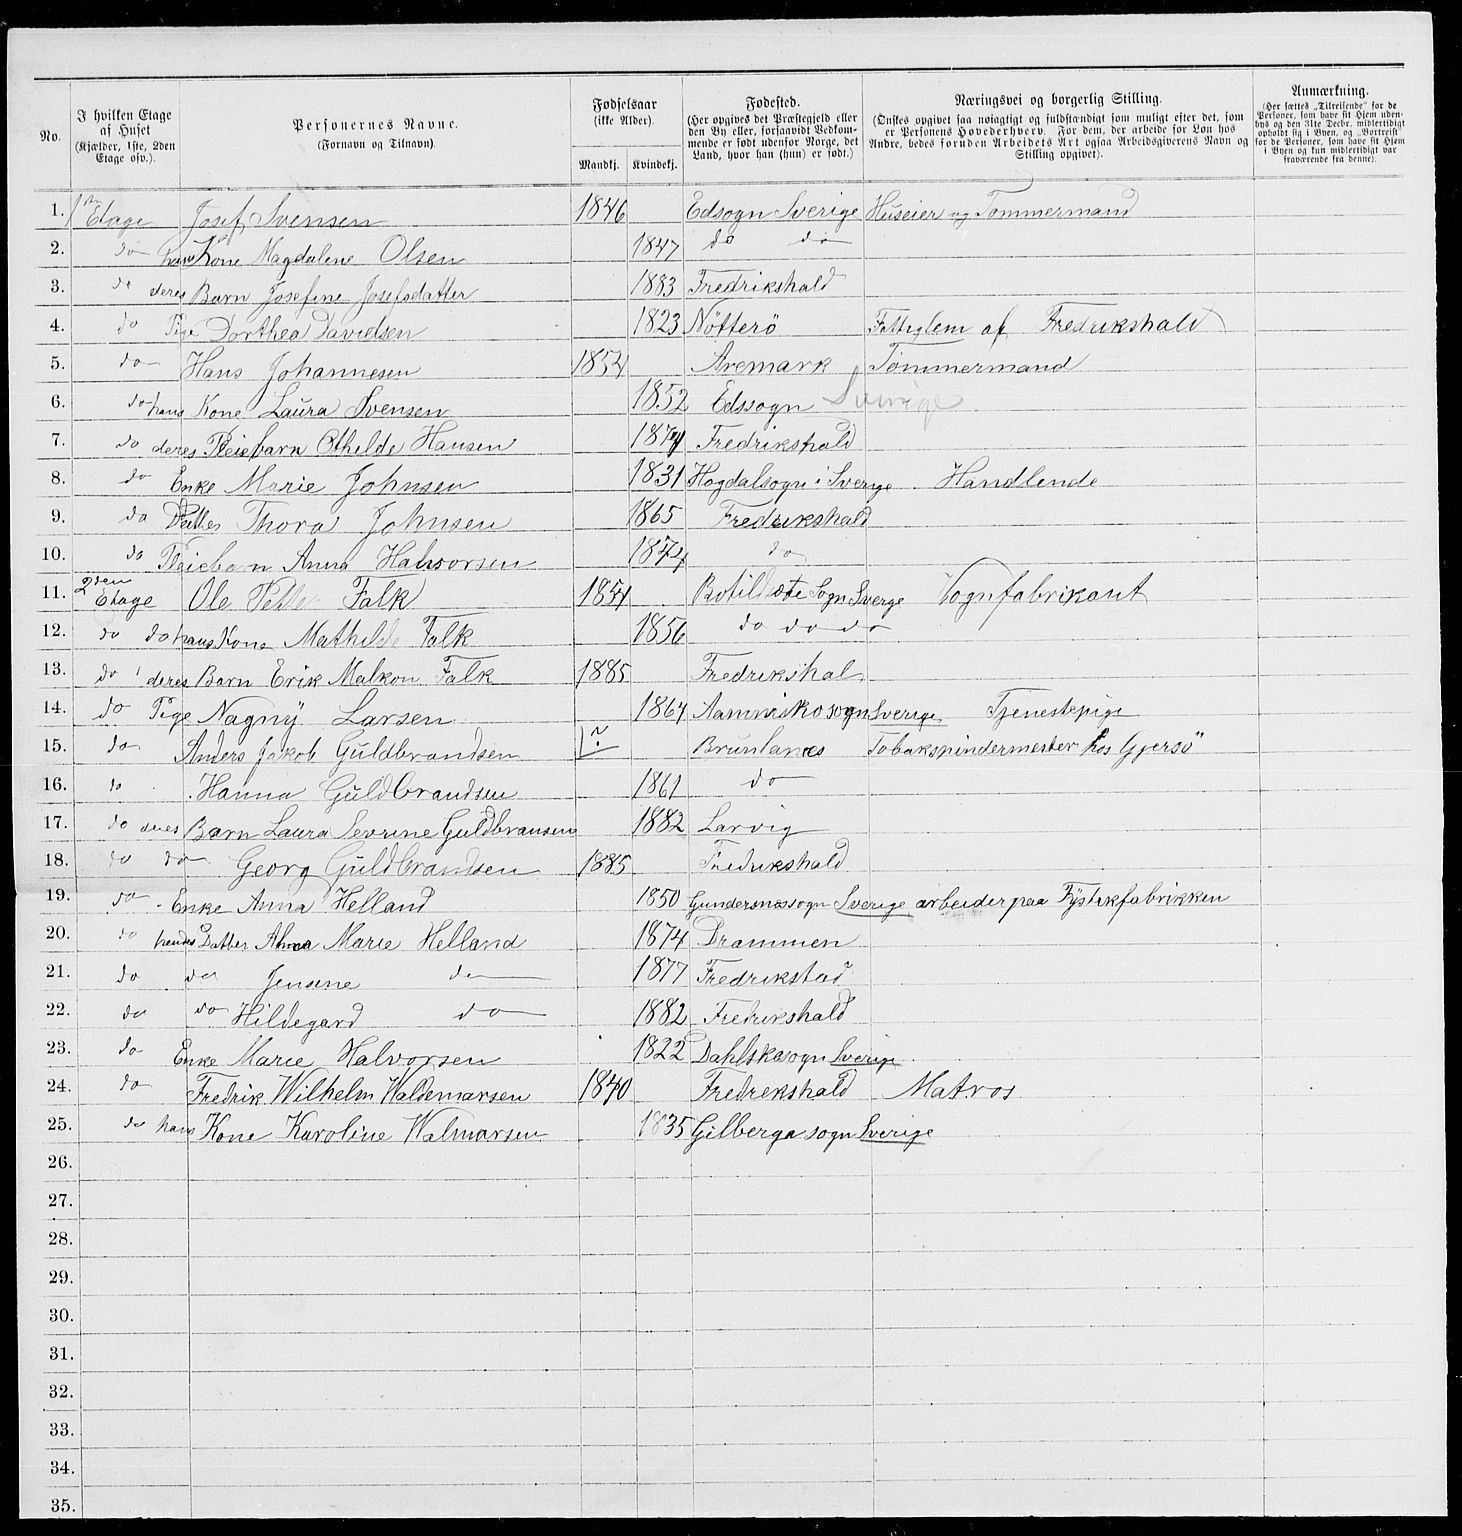 No.
I hvilken Etage af Huset (Kjælder, 1ste, 2den Etage osv.).
Personernes Navne. (Fornavn og Tilnavn).
Fødselsaar (ikke Alder).
Mandkj. Kvindekj.
Fødested. (Her opgives det Præstegjeld eller den By eller, forsaavidt Vedkommende er født udenfor Norge, det Land, hvor han (hun) er født.)
Næringsvei og borgerlig Stilling. (Ønskes opgivet saa nøiagtigt og fuldstændigt som muligt efter det, som er Personens Hovederhverv. For dem, der arbeide for Løn hos Andre, bedes foruden Arbeidets Art ogsaa Arbeidsgiverens Navn og Stilling opgivet).
Anmærkning. (Her sættes „Tilreisende" for de Personer, som have sit Hjem udenbys og den 31te Decbr. midlertidigt opholdt sig i Byen, og „Bortreist" for de Personer, som have sit Hjem i Byen og kun midlertidigt var fraværende fra denne).
1. Etage Josef Svensen 1846 Edsogn Sverige Huseier og Tømmermand
2. do hans Kone Magdalene Olsen 1847 do do
3. do deres Barn Josefine Josefsdatter 1883 Fredrikshald
4. do Pige Dorthea Davidsen 1823 Nötterö Fattiglem af Fredrikshald
5. do Hans Johannesen 1854 Aremark Tömmermand
6. do hans Kone Laura Svensen 1852 Edssogn Sverige
7. do deres Pleiebarn Othelde Hansen Fredrikshald
8. do Enke Marie Johnsen 1831 Hogdalsogn i Sverige Handlende
9. do Datter Thora Johnsen 1865 Fredrikshald
10. do Pleiebarn Anna Halvorsen 1874 do
11. 2den Etage Ole Falk 1854 Sogn Sverge Vognfabrikant
12. do do hans Kone Mathilde Falk 1856 do do do
13. do deres Barn Erik Malkon Falk 1885 Fredrikshal
14. do Pige Nagny Larsen 1864 Sverige Tjenestepige
15. do Anders Jakob Guldbrandsen Brunlanes Tobakspindermester hos Gjersö
16. do Hanna Guldbrandsen 1861 do
17. do deres Barn Laura Sevrine Guldbransen 1882 Larvig
18. do do Georg Guldbrandsen 1885 Fredrikshald
19. do Enke Anna Helland 1850 Gundersnæssogn Sverige arbeider paa Fÿstikfabrikken
20. do hendes Datter Marie Helland 1874 Drammen
21. do do Jensine do 1877 Fredrikstad
22. do do Hildegard do 1882 Fredrikshald
23. do Enke Marie Halvorsen 1822 Dahlskasogn Sverige
24. do Fredrik Wilhelm Waldemarsen 1840 Fredrekshald Matros
25. do hans Kone Karoline Walmarsen 1835 Gilberga sogn Sverige
26.
27.
28.
29.
30.
31.
32.
33.
34.
35.